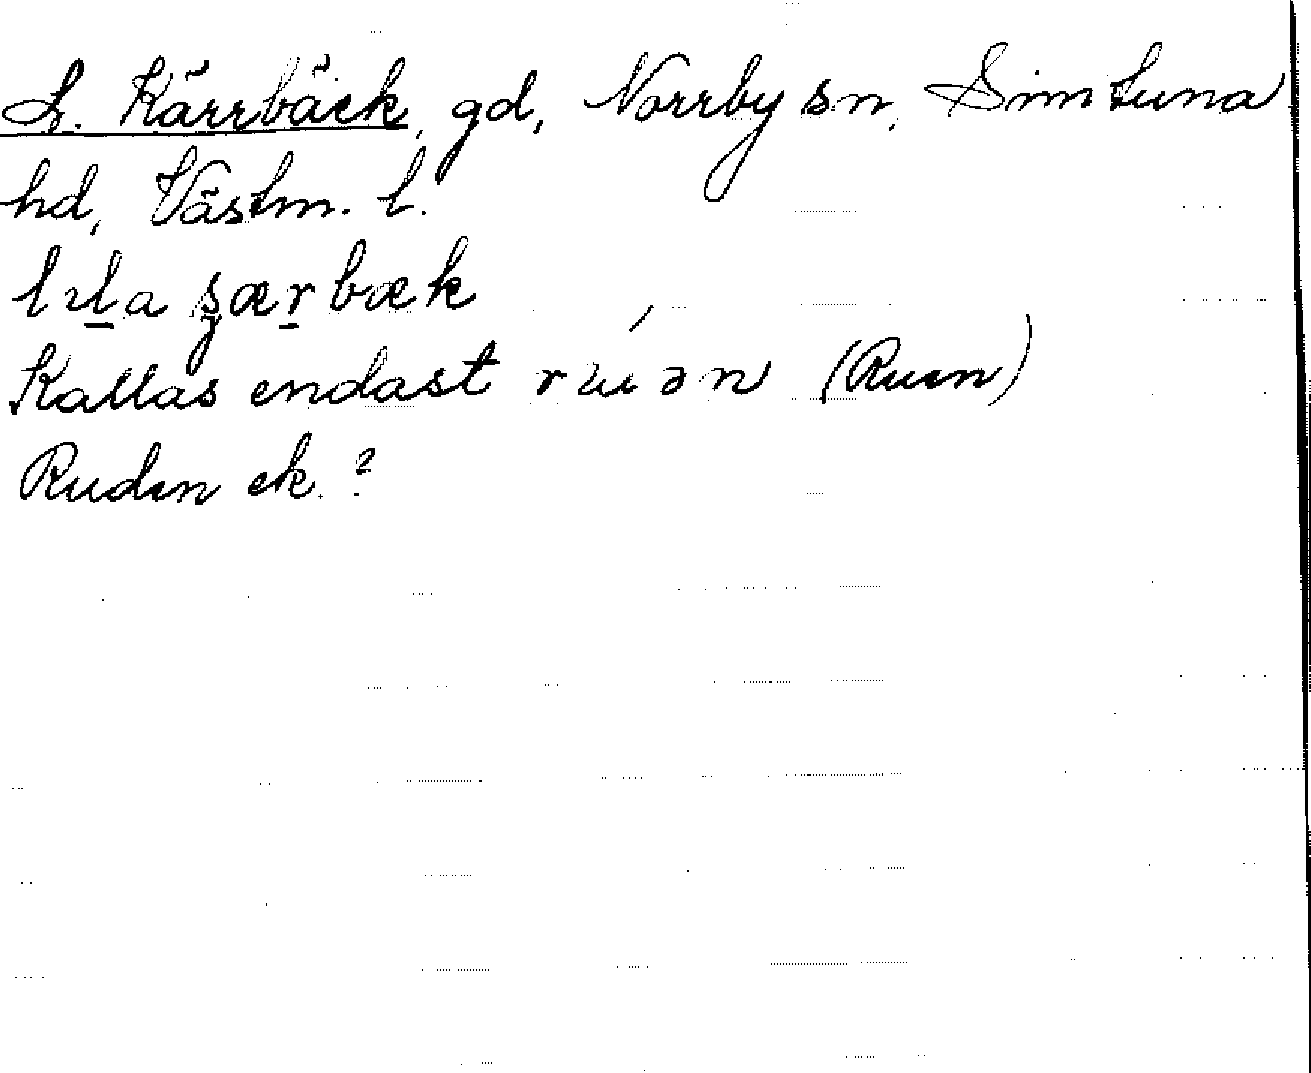 L. Kärrbäck, gd, Norrby sn, Simtuna
hd, Västm. l.
lıla særbæk
Kallas endast rúən (Ruen)
Ruden ek. ?